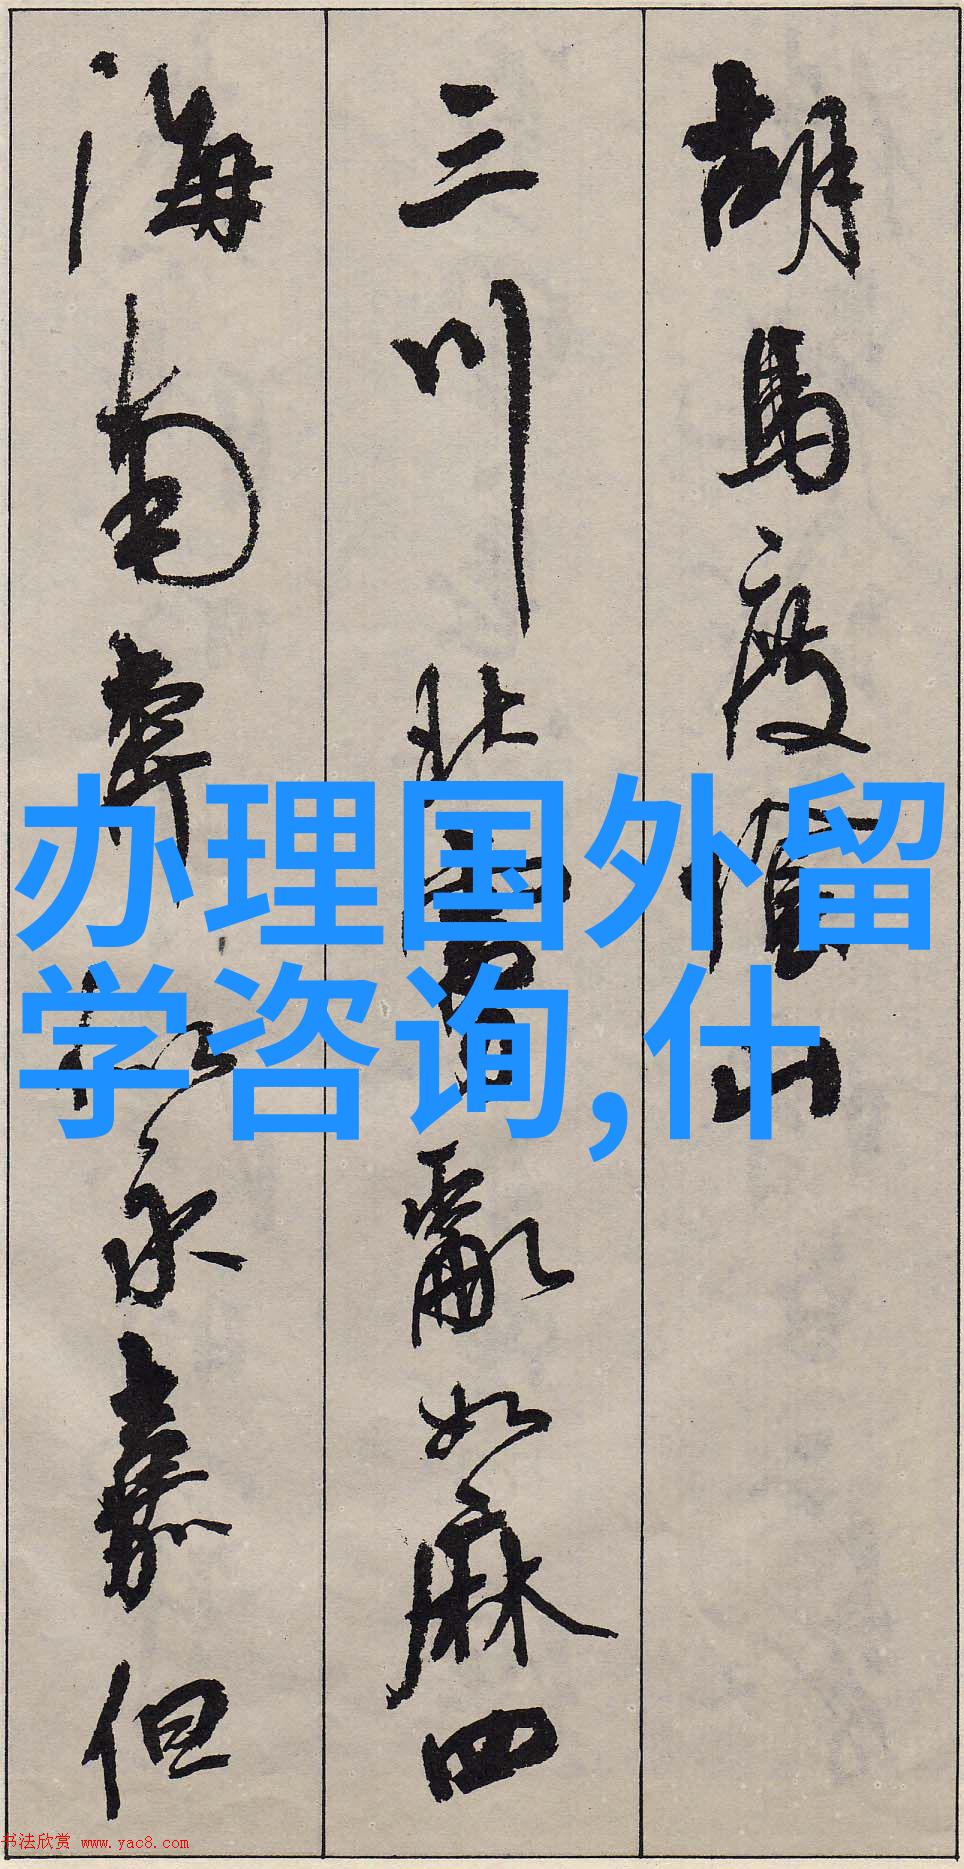 胡马度阴山
三川北虏乱如麻四
海南奔似永嘉但
办理国外留
学咨询,什
书法欣赏 www.yac8.com